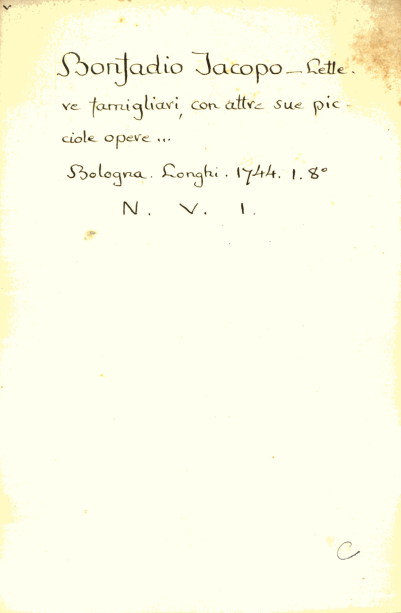 Bonfadio Jacopo — Lette.
re famigliari, con altre sue pic-
ciole opere...
Bologna. Longhi. 1744. 1. 8°
N. V. 1.
C